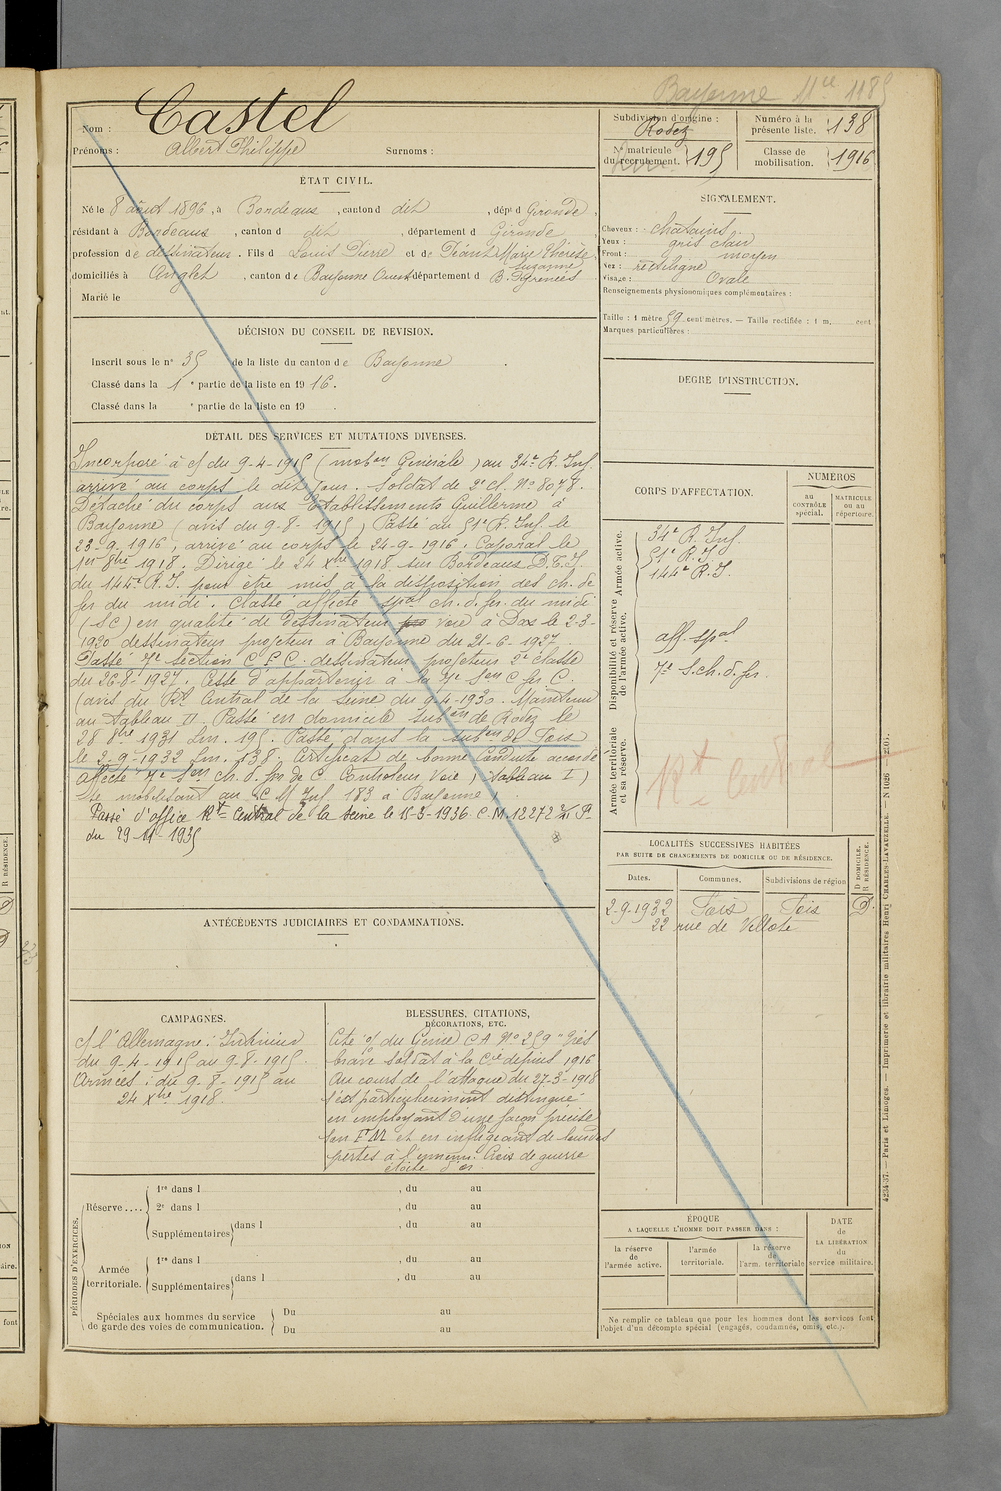 Bayonne Mle 1185
Nom : Castel
Prénoms : Albert Philippe Surnoms :
Subdivision d'origine :
Rodez
Numéro à la présente liste. 138
N° matricule du recrutement. 195
Classe de mobilisation. 1916
ÉTAT CIVIL.
Né le 8 août 1896, à Bordeaux, canton d dit, dép^t d Gironde,
résidant à Bordeaux, canton d dit, département d Gironde
profession de dessinateur. Fils d Louis Pierre et de Marie Thérèse
Suzanne
domiciliés à Anglet, canton de Bayonne Ouest département d B. Pyrénées
Marié le
SIGNALEMENT.
Cheveux : châtains.
Yeux : gris clair
Front : moyen
Nez : rectiligne
Visage : Ovale
Renseignements physionomiques complémentaires :
Taille : 1 mètre 59 centimètres. — Taille rectifiée : 1 m. cent
Marques particulières :
DÉCISION DU CONSEIL DE REVISION.
Inscrit sous le n° 35 de la liste du canton de Bayonne
Classé dans la 1^e partie de la liste en 1916.
Classé dans la ^e partie de la liste en 19
DEGRÉ D'INSTRUCTION.
DÉTAIL DES SERVICES ET MUTATIONS DIVERSES.
Incorporé à c/ du 9-4-1915 (mob^on Générale) au 34e R. Inf.
arrivé au corps le dit jour. Soldat de 2e cl. N° 8078.
Détaché du corps aux Etablissements Guillerme à
Bayonne avis du 9-8-1915) Passé au 51e R. Inf. le
23-9-1916, arrivé au corps le 24-9-1916. Caporal le
1er 8bre 1918. Dirigé le 24 Xbre 1918 sur Bordeaux D.T.I.
du 144e R.I. pour être mis à la disposition des ch. de
fer du midi. Classé affecté spal ch. d. fer. du midi
(S.C) en qualité de dessinateur voie à Dax le 2-3-
1920 dessinateur projeteur à Bayonne du 21-6-1927
Passé 7e Section C.F.C. dessinateur projeteur 2e classe
du 26-8-1927. Cesse d'appartenir à la 7e Son C fer C.
(avis du Rt Central de la Seine du 9-4-1930. Maintenu
au tableau II. Passé en domicile sub^on de Rodez le
28 1931 195. Passé dans la sub^on de Foix
le 2-9-1932 538. Certificat de bonne Conduite accordé
Affecté 7e Son ch. d. fer de C. Controleur Voie (tableau I)
se mobilisant au C M Inf. 183 à Bayonne,
Passé d'office Rt Central de la Seine le 15-3-1936 C.M. 12272 P.
du 29-11-1935
CORPS D'AFFECTATION.
NUMÉROS
au CONTRÔLE spécial.
MATRICULE ou au répertoire.
Armée active.
34e R. Inf.
51e R. I.
144e R.I.
Disponibilité et réserve de l'armée active.
aff. spal
7e S. ch. d. fer.
Armée territoriale et sa réserve.
Rt Central
LOCALITÉS SUCCESSIVES HABITÉES
PAR SUITE DE CHANGEMENTS DE DOMICILE OU DE RÉSIDENCE.
Dates. Communes. Subdivisions de région D DOMICILE. R RÉSIDENCE.
2-9-1932 Foix Foix D.
22 rue de Villote
ANTÉCÉDENTS JUDICIAIRES ET CONDAMNATIONS.
CAMPAGNES.
c/ l'Allemagne : Intérieur
du 9-4-1915 au 9-8-1915
Armées : du 9-8-1915 au
24 Xbre 1918.
BLESSURES, CITATIONS,
DÉCORATIONS, ETC.
Cité o/ du Génie CA N° 259 "Très
brave soldat à la Cie depuis 1916
Au cours de l'attaque du 27-3-1918
s'est particulièrement distingué
en employant d'une façon précise
son F M et en infligeant de lourdes
pertes à l'ennemi. Croix de guerre
étoile d'or
PÉRIODES D'EXERCICES.
Réserve.... 1re dans l , du au
2e dans l , du au
Supplémentaires dans l , du au
Armée territoriale. 1re dans l , du au
Supplémentaires dans l , du au
Spéciales aux hommes du service de garde des voies de communication. Du au
Du au
ÉPOQUE
A LAQUELLE L'HOMME DOIT PASSER DANS :
la réserve de l'armée active.
l'armée territoriale.
la réserve de l'arm. territoriale
DATE de LA LIBÉRATION du service militaire.
Ne remplir ce tableau que pour les hommes dont les services font
l'objet d'un décompte spécial (engagés, condamnés, omis, etc.).
4234-37. — Paris et Limoges. — Imprimerie et librairie militaires Henri CHARLES-LAVAUZELLE. — N 1026